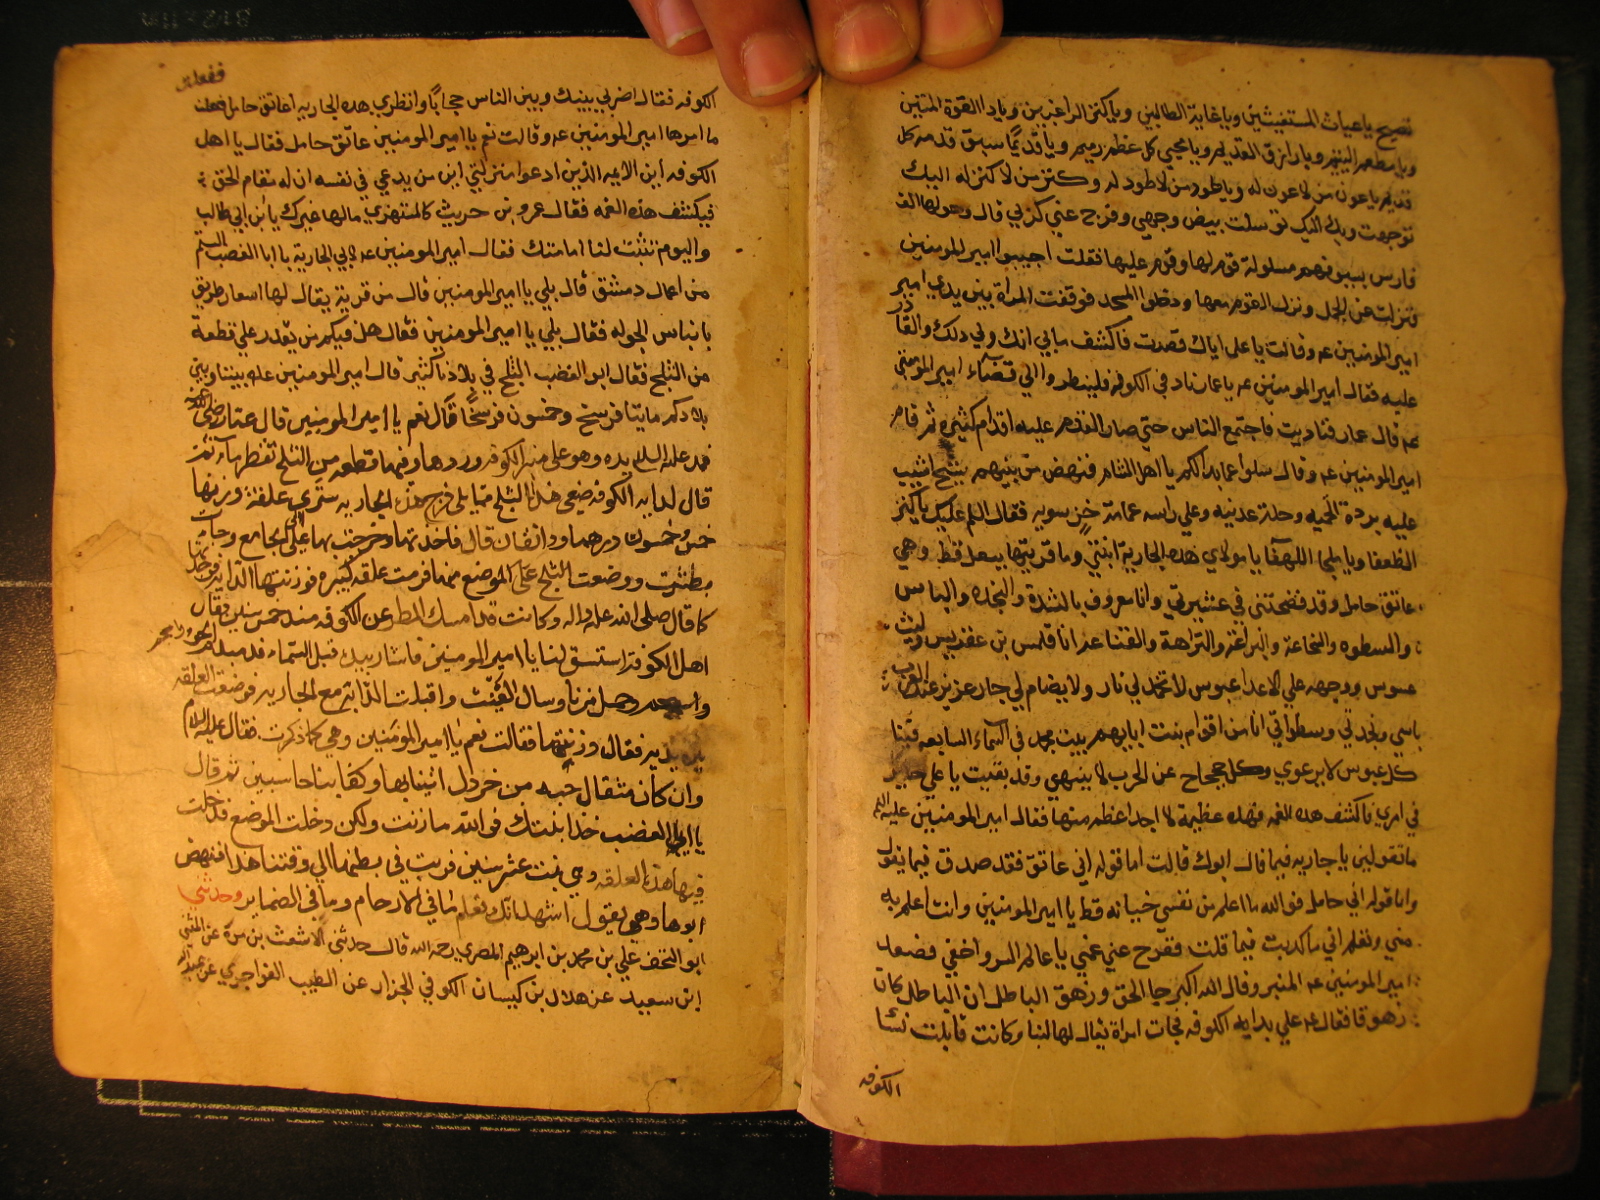 تصيح يا غياث المستغيثين ويا غاية الطالبين ويا كنز الراغبين ويا ذا القوة المتين
ويا مطعم اليتيم ويا رازق العديم ويا محيي كل عظم رميم ويا قديمًا سبق قدمه كل
قديم يا عون من لا عون له ويا طود من لا طود له وكنز من لا كنز له اليك
توجهت وبك اليك توسلت بيض وجهي وفرج عني كربي قال وحولها الف
فارس بسيوفهم مسلولة قوم لها وقوم عليها فقلت اجيبوا امير المومنين
فنزلت عن الجمل ونزل القوم معها ودخلوا المسجد فوقفت المراة بين يدي امير
امير المومنين عم وقالت يا علي اياك قصدت فاكشف ما بي انك ولي ذلك والقادر
عليه فقال امير المومنين عم يا عمار ناد في الكوفه فلينظروا الي قضاء امير المومنين
عم قال عمار فناديت فاجتمع الناس حتي صار القدم عليه اقدام كثيره ثم قام
امير المومنين عم وقال سلوا عما بدالكم يا اهل الشام فنهض من بينهم شيخ اشيب
عليه بردة اتحميه وحلة عدنيه وعلي راسه عمامة خز سوسيه فقال السلم عليك يا كنز
الضعفا ويا ملجا اللهفا يا مولاي هذه الجارية ابنتي وما قربتها ببعل قط وهي
عاتق حامل وقد فضحتني في عشيرتي وانا معروف بالشدة والنجده والباس
والسطوه والشجاعة والبراعة والنزاهة والقناعه انا قلمس بن عفريس وليث
عسوس ووجهه علي الاعدا عبوس لا تخمد لي نار ولا يضام لي جار عزيز عند العرب
باسي ونجدتي وسطواتي انا من اقوام بيت ابايهم بيت مجد في السماء السابعه فينا
كل عبوس لا يرعوي وكل جحجاح عن الحرب لا ينتهي وقد بقيت يا علي حاير
في امري فاكشف هذه الغمه فهذه عظيمة لا اجد اعظم منها فقال امير المومنين عليه السلم
ما تقولين يا جاريه فيما قال ابوك قالت اما قوله اني عاتق فقد صدق فيما يقول
واما قوله اني حامل فوالله ما اعلم من نفسي خيانه قط يا امير المومنين وانت اعلم به
مني وتعلم اني ما كذبت فيما قلت ففرج عني غمي يا عالم السر واخفي فصعد
امير المومنين عم المنبر وقال الله اكبر جا الحق وزهق الباطل ان الباطل كان
زهوقا فقال عم علي بداية الكوفه فجات امراة يقال لها لبنا وكانت قابلت نسا
الكوفه
ففعلت
الكوفه فقال اضربي بينك وبين الناس حجابًا وانظري هذه الجاريه اعاتق حامل ففعلت
ما امرها امير المومنين عم وقالت نعم يا امير المومنين عاتق حامل فقال يا اهل
الكوفه اين الايمه الذين ادعوا منزلتي اين من يدعي في نفسه ان له مقام الحق
فيكشف هذه الغمه فقال عمرو بن حريث كالمستهزي ما لها غيرك يا بن ابي طالب
واليوم تثبت لنا امامتك فقال امير المومنين عم لابي الجارية يا ابا الغضب الستم
من اعمال دمشق قال بلي يا امير المومنين قال من قرية يقال لها اسعار طريق
بانياس الجوله فقال بلي يا امير المومنين فقال هل فيكم من يقدر علي قطعة
من الثلج فقال ابو الغضب الثلج في بلادنا كثير قال امير المومنين علم بيننا وبين
بلادكم مايتا فرسخ وخمسون فرسخًا قال نعم يا امير المومنين قال عمار رضي الله عنه
فمد عليه السلم يده وهو علي منبر الكوفه وردها وفيها قطعه من الثلج تقطر ماء ثم
قال لدايه الكوفه ضعي هذا الثلج مما يلي فرج هذه الجاريه ستري علقة وزنها
خمس وخمسون درهما ودانقان قال فاخذتها وخرجت بها الي الجامع وجات
بطشت ووضعت الثلج علي الموضع منها فرمت علقه كبيره فوزنتها الدايه فوجدتها
كما قال صلي الله عليه واله وكانت قد امسك المطر عن الكوفه منذ خمس سنين فقال
اهل الكوفة استسق لنا يا امير المومنين فاشار بيده قبل السماء
وحمل مزنا وسال الغيث واقبلت الداية مع الجاريه فوضعت العلقه
يديه فقال وزنتها فقالت نعم يا امير المومنين وهي كما ذكرت فقال عليه السلام
وان كان مثقال حبه من خردل اتينا بها وكفا بنا حاسبين ثم قال
يا ابا الغضب خذ ابنتك فوالله ما زنت ولكن دخلت الموضع فدخلت
فيها هذه العلقه وهي بنت عشر سنين فربت في بطنها الي وقتنا هذا فنهض
ابوها وهو يقول اشهد انك تعلم ما في الارحام وما في الضماير وحدثني
ابو التحف علي بن محمد بن ابرهيم المصري رحمه الله قال حدثني الاشعث بن مرة عن المثني
ابن سعيد عن هلال بن كيسان الكوفي الجزار عن الطيب الفواجري عن عبدالله